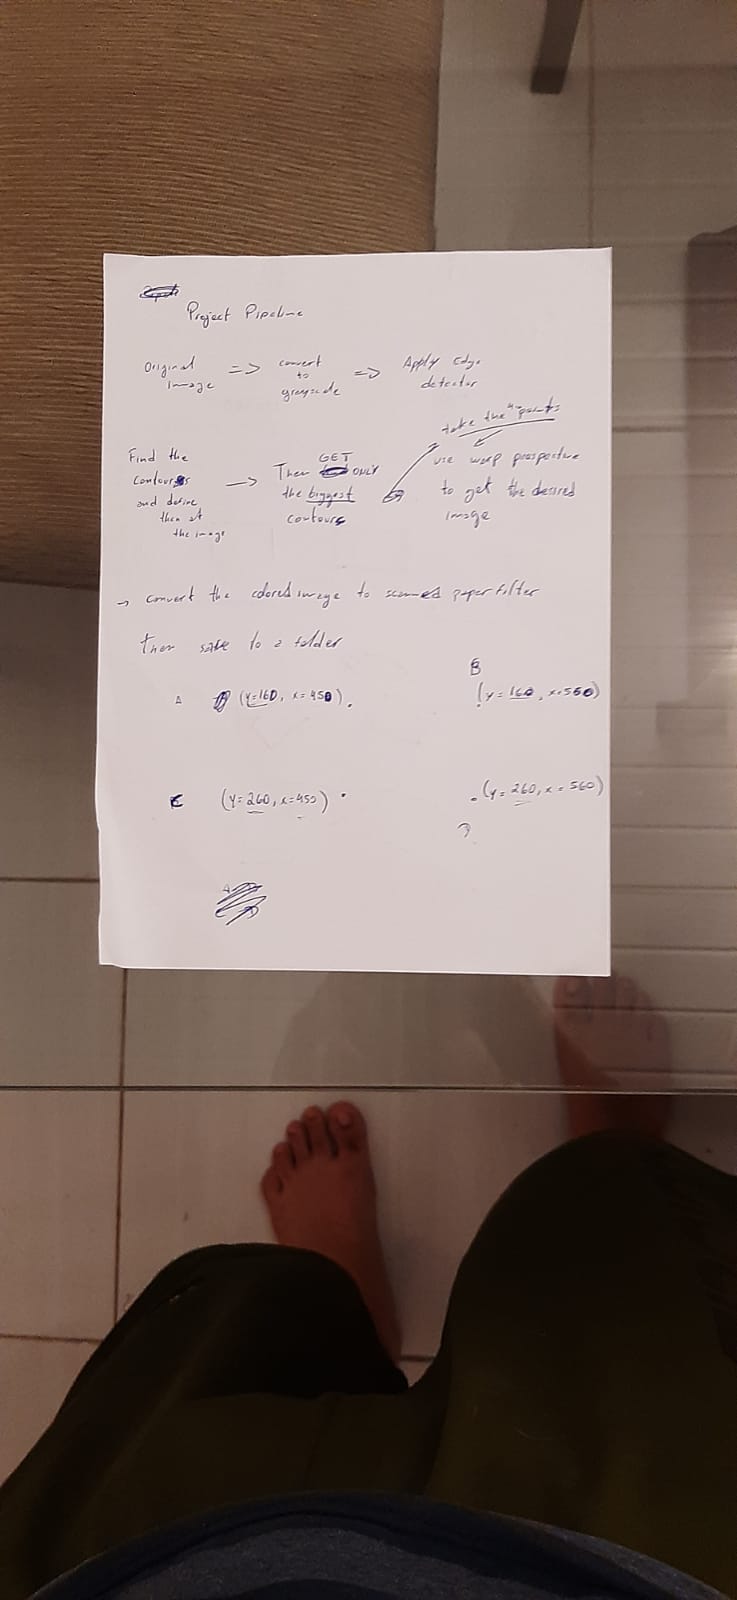 Project Pipeline
Original
image
=> convert
to
greyscale
=> Apply Edge
detector
Find the
contours
and define
then at
the image
→ Then GET ONLY
the biggest
contours
take the 4 points
use warp prospective
to get the desired
image
→ convert the colored image to scanned paper filter
Then save to a folder
A (y=160, x=450)
B
(y=160, x=560)
C (y=260, x=450)
(y=260, x=560)